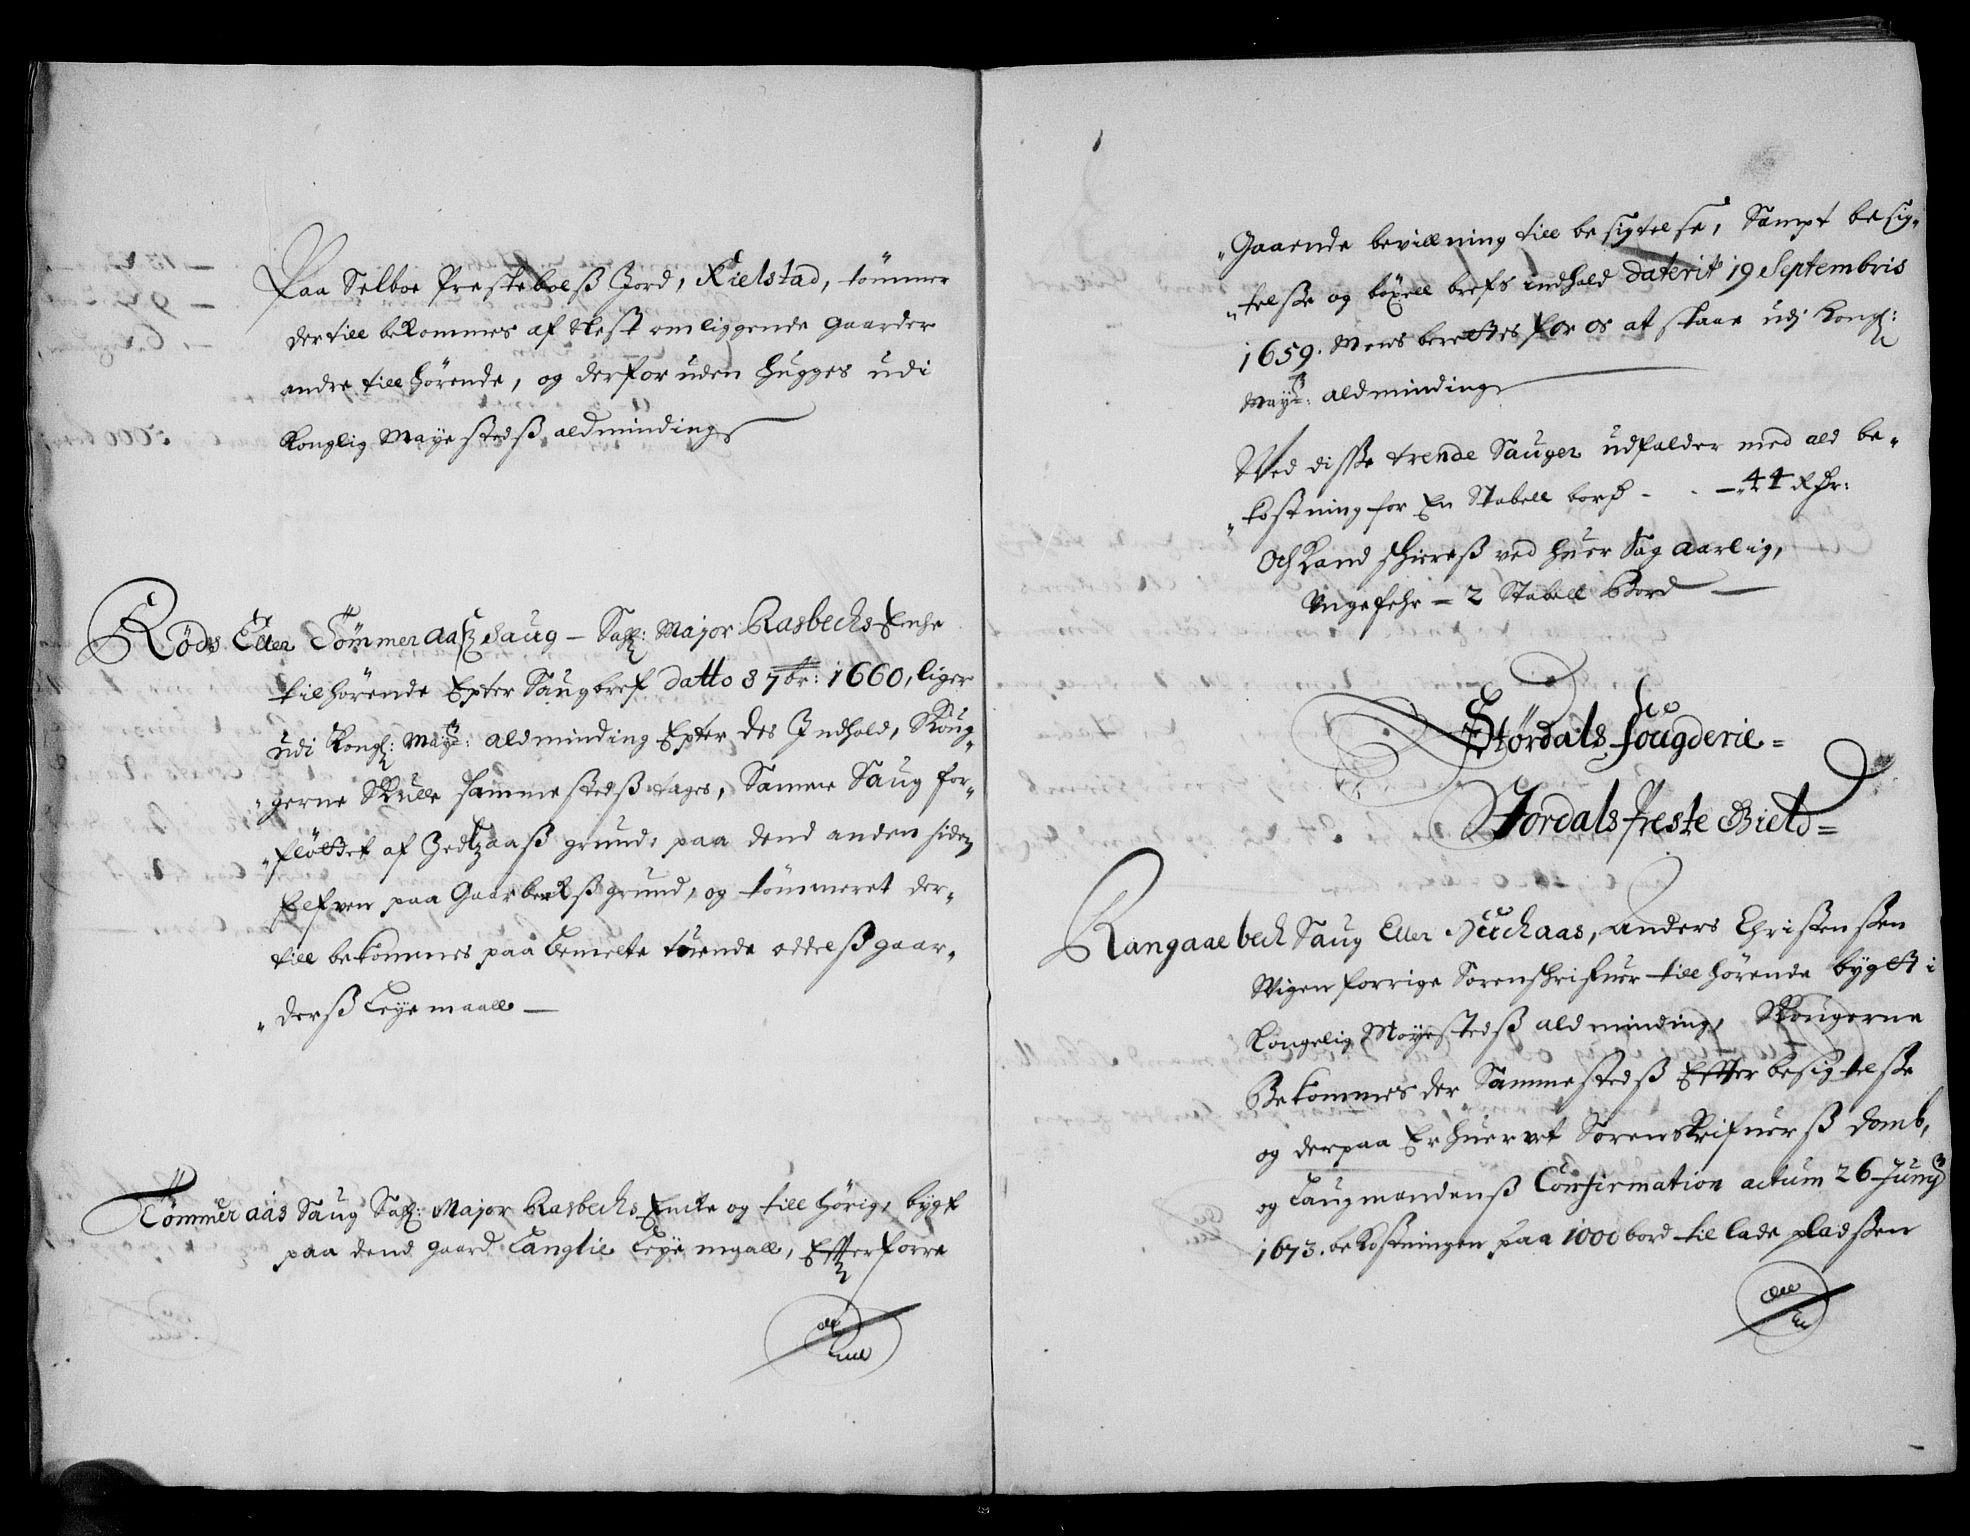 Paa Selboe Prestebolß Jord, Kielstad, tømmer
dertill bekommes af Nest omliggende Gaarder
andre tillhørende, og derforuden hugges udi
Konglig Mayestedß aldminding
Røds Eller Tømmer aaß Saug - Sahl: Major Rasbechs Enche
tilhørende Epter Saugbref datto 8 7br: 1660, liger
udi Kongl: Maytz: aldminding Epter des Indhold, Skoug-
gerne Skulle sammestedß tages, Samme Saug for-
fløttet af Jedtzaaß grund, paa dend anden siden
Elfven paa Gaarbakß grund, og tømmeret der-
till bekommes paa bemelte tuende oddelß gaar-
derß Leyemaall -
Tømmer aas Saug Sahl: Major Rasbechs Encke og till hørig, bygt
paa dend gaard Langlie Leye maall, Effter forre
Gaaende bevillning till besigtelse, Sampt besig-
telße og bøxell brefs indhold daterit 19 Septembris
1659. Mens berettes for os at staae udj Kongl:
Maytz: aldminding
Ved disße trende Sauger udfalder med ald be-
kostning for En Stabell bord - - 44 Rdr:
Och Kand schiereß ved huer Sag aarlig,
Ungefehr - 2 Stabell Bord -
Størdals fougderie =
Størdals Preste Gield =
Rangaae bech Saug Eller Huchaas, Anders Christensßen
Wigen forrige Sorenschrifuer till hørende bygtt i
Kongelig Mayestedß aldminding, Skougerne
Bekommes der Sammestedß Effter besigtelße
og derpaa Erhuervet Sorenskrifuerß domb,
og Laugmandenß Confirmation actum 26 Juny
1673. bekostningen paa 1000 bord til lade pladsßen